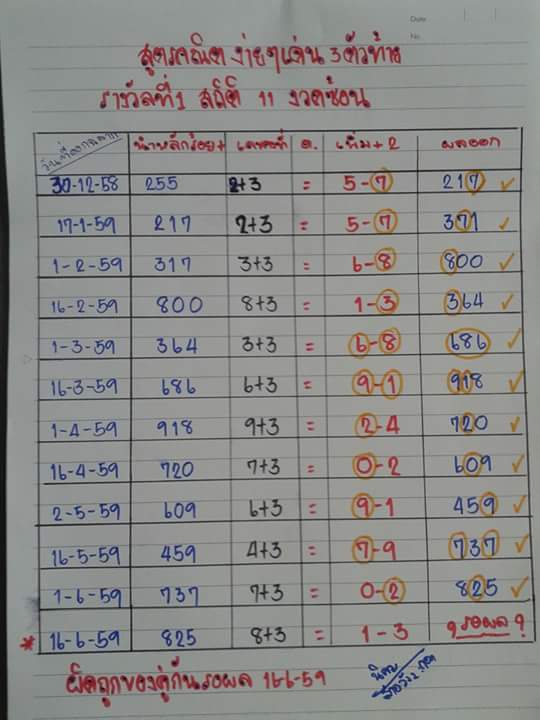 Date
No.
สูตรคณิต ง่ายๆเด่น 3 ตัวท้าย
รางวัลที่1 สถิติ 11 งวดซ้อน
วันที่ออกสลาก นำหลักร้อย+ เลขคงที่ ด. เพิ่ม+2 ผลออก
30-12-58 255 2+3 = 5-7 217 ✓
17-1-59 217 2+3 = 5-7 371 ✓
1-2-59 317 3+3 = 6-8 800 ✓
16-2-59 800 8+3 = 1-3 364 ✓
1-3-59 364 3+3 = 6-8 686 ✓
16-3-59 686 6+3 = 9-1 918 ✓
1-4-59 918 9+3 = 2-4 720 ✓
16-4-59 720 7+3 = 0-2 609 ✓
2-5-59 609 6+3 = 9-1 459 ✓
16-5-59 459 4+3 = 7-9 737 ✓
1-6-59 737 7+3 = 0-2 825 ✓
* 16-6-59 825 8+3 = 1-3 ? รอผล ?
ผิดถูกของคู่กันรอผล 16-6-59